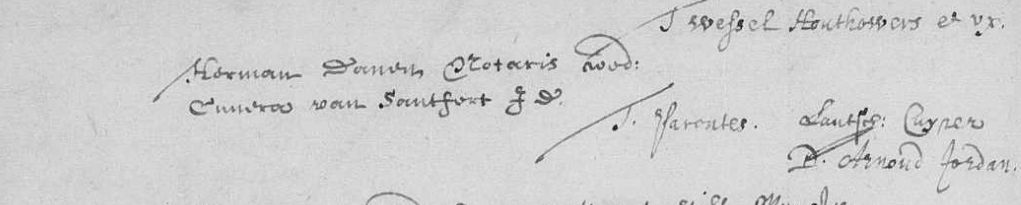 T Wessel Houthowers et ux.
Herman Danen Notaris wed:
Cunera van Santfort J d.
T. Parentes. Lantsch: Cuyper
D. Arnoud Jordan.